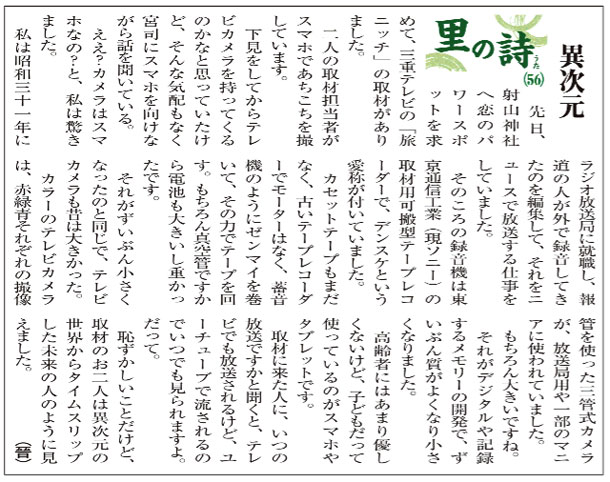 里の詩
うた
(56)
異次元
先日、
射山神社
へ恋のパ
ワースポ
ットを求
めて、三重テレビの「旅
ニッチ」の取材があり
ました。
二人の取材担当者が
スマホであちこちを撮
しています。
下見をしてからテレ
ビカメラを持ってくる
のかなと思っていたけ
ど、そんな気配もなく
宮司にスマホを向けな
がら話を聞いている。
ええ?カメラはスマ
ホなの?と、私は驚き
ました。
私は昭和三十一年に
ラジオ放送局に就職し、報
道の人が外で録音してき
たのを編集して、それをニ
ュースで放送する仕事を
していました。
そのころの録音機は東
京通信工業(現ソニー)の
取材用可搬型テープレコ
ーダーで、デンスケという
愛称が付いていました。
カセットテープもまだ
なく、古いテープレコーダ
ーでモーターはなく、蓄音
機のようにゼンマイを巻
いて、その力でテープを回
す。もちろん真空管ですか
ら電池も大きいし重かっ
たです。
それがずいぶん小さく
なったのと同じで、テレビ
カメラも昔は大きかった。
カラーのテレビカメラ
は、赤緑青それぞれの撮像
管を使った三管式カメラ
が、放送局用や一部のマニ
アに使われていました。
もちろん大きいですね。
それがデジタルや記録
するメモリーの開発で、ず
いぶん質がよくなり小さ
くなりました。
高齢者にはあまり優し
くないけど、子どもだって
使っているのがスマホや
タブレットです。
取材に来た人に、いつの
放送ですかと聞くと、テレ
ビでも放送されるけど、ユ
ーチューブで流されるの
でいつでも見られますよ。
だって。
恥ずかしいことだけど、
取材のお二人は異次元の
世界からタイムスリップ
した未来の人のように見
えました。
(晉)